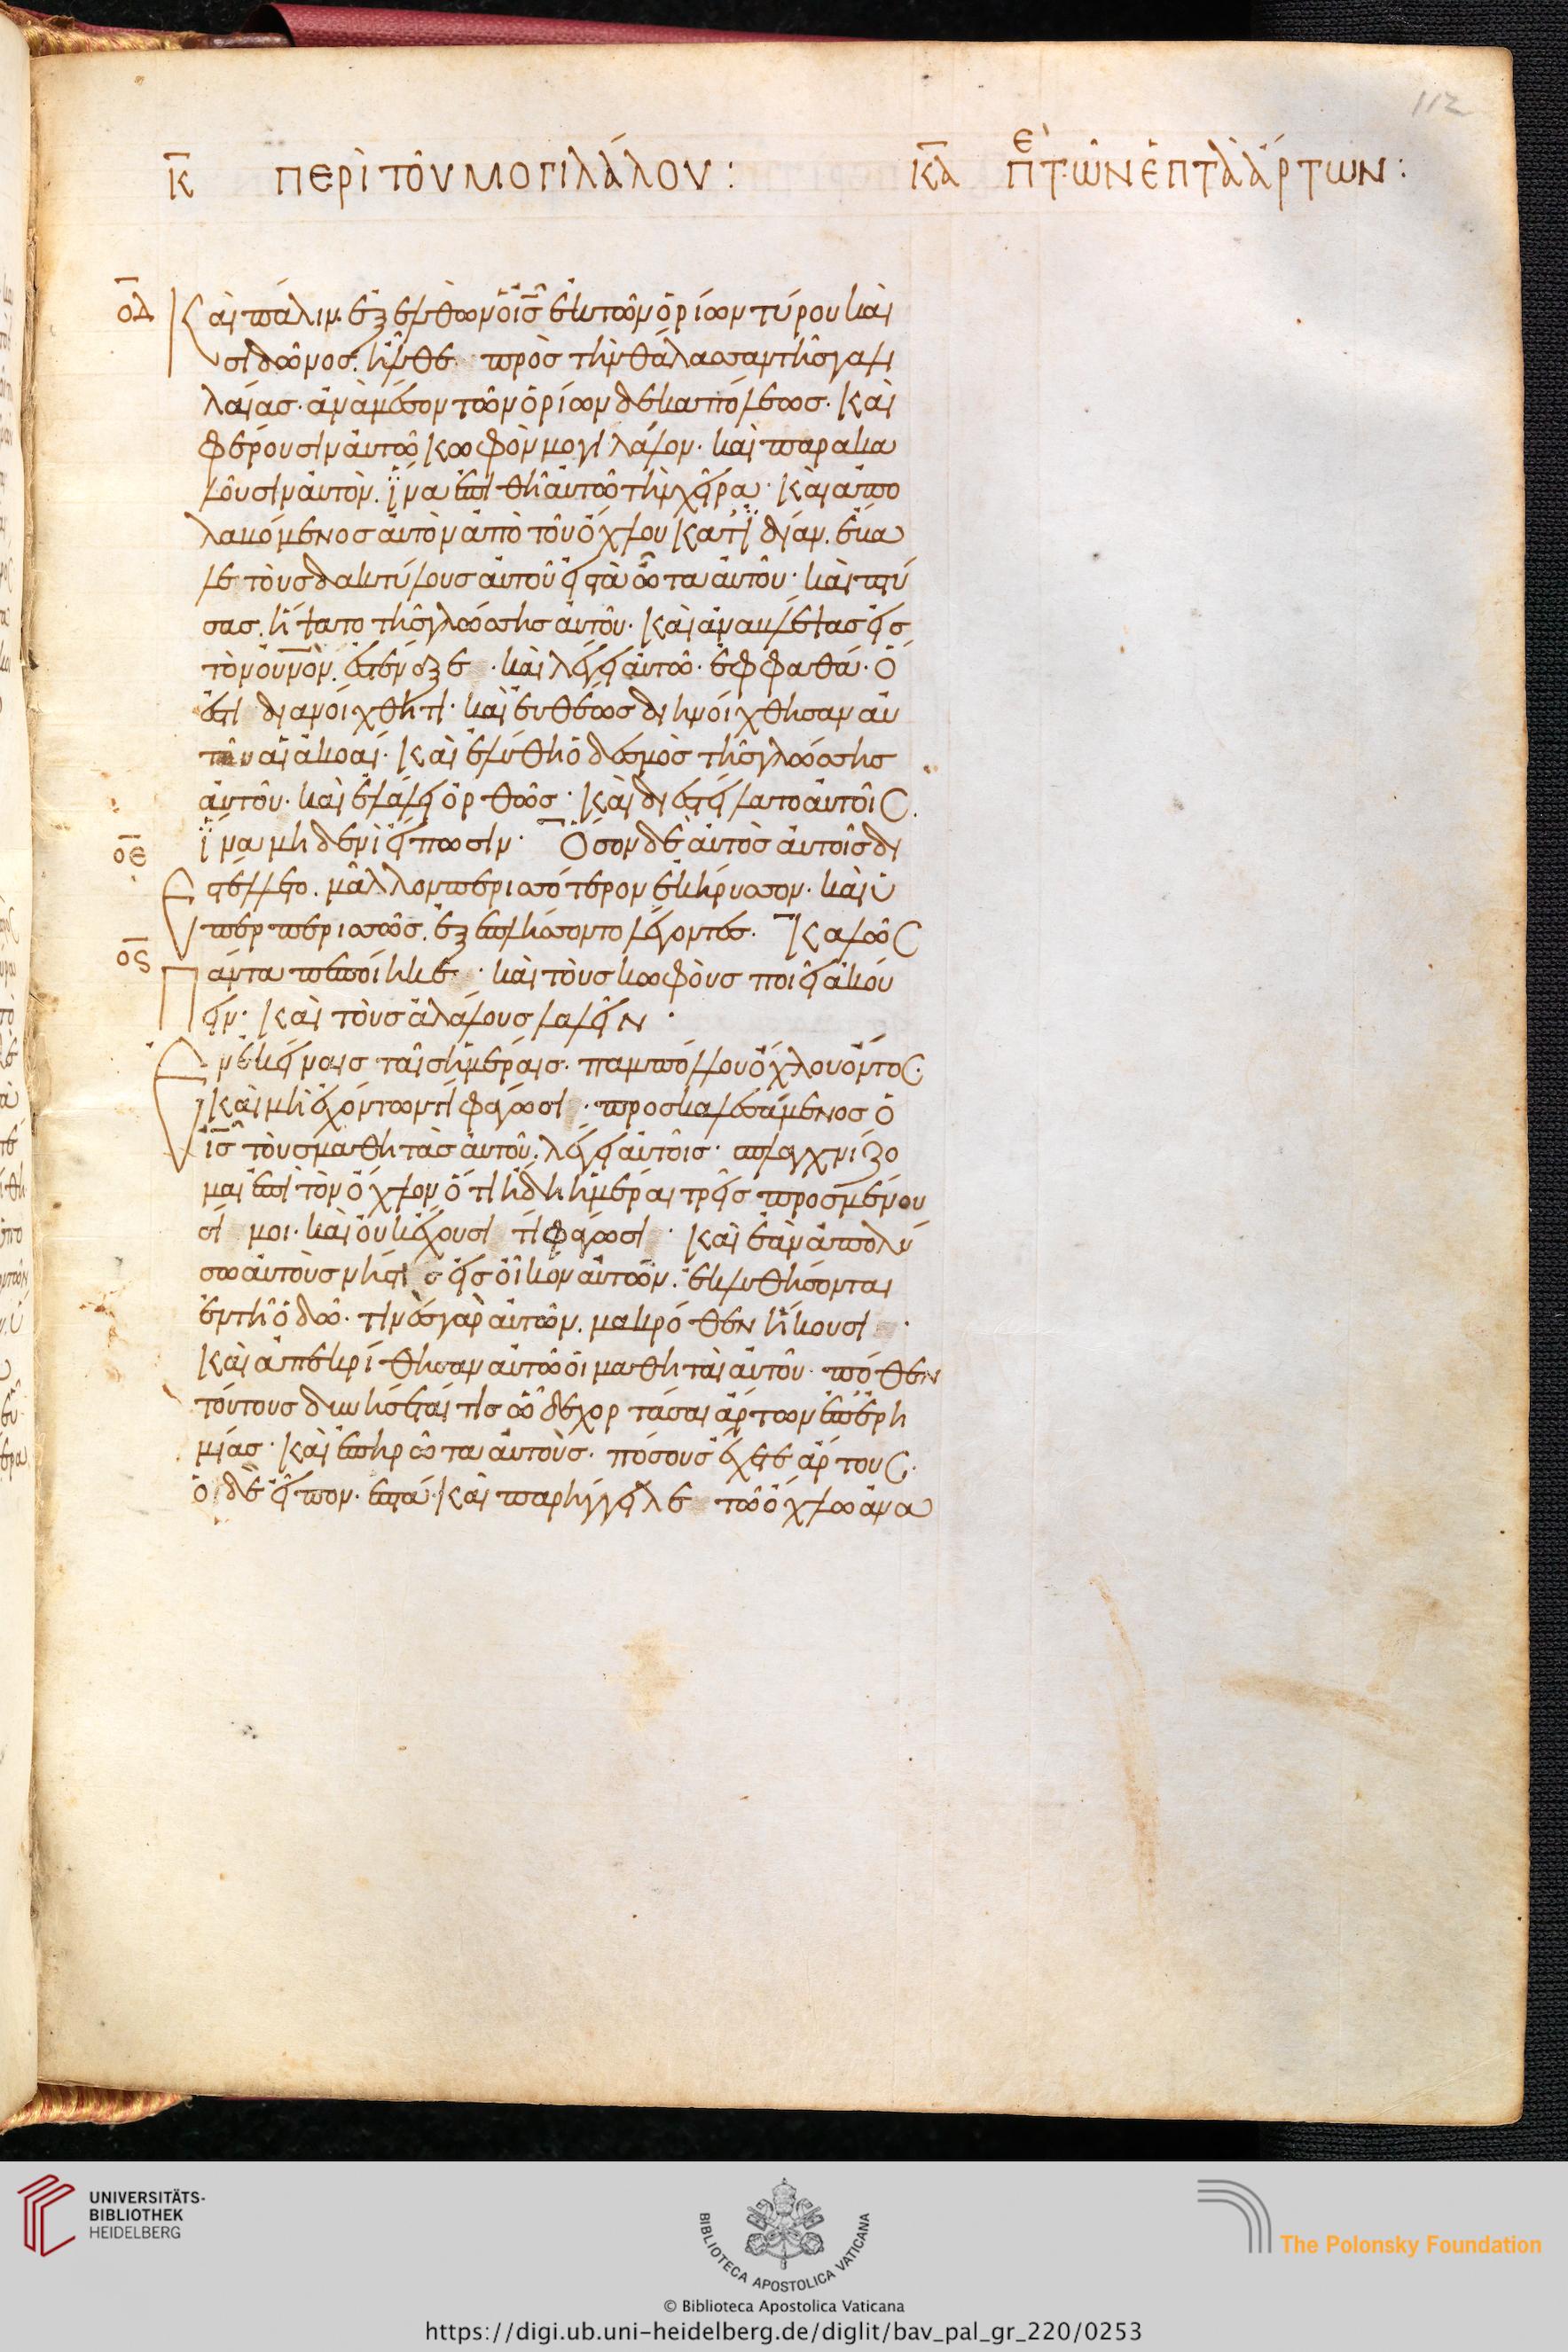 112
κ̅ περὶ τοῦ μογιλάλου : κ̅α̅ πὲ τῶν ἑπτὰ ἄρτων :
ο̅δ̅ Καὶ πάλιν ἐξελθὼν ὁ ι̅ς̅ ἐκ τῶν ὁρίων τύρου καὶ
σιδῶνος. ἦλθε πρὸς τὴν θάλασσαν τῆς γαλι
λαίας· ἀναμέσον τῶν ὁρίων δεκαπόλεως· Καὶ
φέρουσιν αὐτῶ κωφὸν μογιλάλον· καὶ παρακα
λοῦσιν αὐτὸν. ἵνα ἐπιθῆ αὐτῶ τὴν χεῖρα· Καὶ ἀπο
λαβόμενος αὐτὸν ἀπὸ τοῦ ὄχλου κατϊδίαν. ἔβα
λε τοὺς δακτύλους αὐτοῦ εἰς τὰ ὦτα αὐτοῦ· καὶ πτύ
σας. ἥψατο τῆς γλώσσης αὐτοῦ· Καὶ ἀναβλέψας εἰς
τὸν ο̅υ̅ν̅ο̅ν̅. ἐστέναξε· καὶ λέγει αὐτῶ· ἐφφαθά· ὅ
ἐστι διανοίχθητι· καὶ εὐθέως διηνοίχθησαν αὐ
τοῦ αἱ ἀκοαί· Καὶ ἐλύθη ὁ δεσμὸς τῆς γλώσσης
αὐτοῦ· καὶ ἐλάλει ὀρθῶς· Καὶ διεστείλατο αὐτοῖς.
ἵνα μηδενὶ εἴπωσιν· Ὅσον δὲ αὐτὸς αὐτοῖς δι
ο̅ε̅ εστέλλετο. μᾶλλον περισσότερον ἐκήρυσσον· καὶ ὑ
περπερισσῶς. ἐξεπλήσσοντο λέγοντες· Καλῶς
ο̅ϛ̅ πάντα πεποίηκε· καὶ τοὺς κωφοὺς ποιεῖ ἀκού
ειν· Καὶ τοὺς ἀλάλους λαλεῖν·
Ἐν ἐκείναις ταῖς ἡμέραις· παμπόλλου ὄχλου ὄντος.
Καὶ μὴ ἐχόντων τί φάγωσι· προσκαλεσάμενος ὁ
ι̅ς̅ τοὺς μαθητὰς αὐτοῦ. λέγει αὐτοῖς· σπλαγχνίζο
μαι ἐπὶ τὸν ὄχλον ὅτι ἤδη ἡμέραι τρεῖς προσμένου
σί μοι· καὶ οὐκ ἔχουσι τί φάγωσι· Καὶ ἐὰν ἀπολύ
σω αὐτοὺς νήστις εἰς οἶκον αὐτῶν. ἐκλυθήσονται
ἐν τῆ ὁδῶ· τινὲς γὰρ αὐτῶν. μακρόθεν ἥκουσι·
Καὶ ἀπεκρίθησαν αὐτῶ οἱ μαθηταὶ αὐτοῦ· πόθεν
τούτους δυνήσεταί τις ὧδε χορτάσαι ἄρτων ἐπ' ἐρη
μίας· Καὶ ἐπηρώτα αὐτοὺς· πόσους ἔχετε ἄρτους·
οἱ δὲ εἶπον· ἑπτά· Καὶ παρήγγειλε τῶ ὄχλω ἀνα
UNIVERSITÄTS-
BIBLIOTHEK
HEIDELBERG
BIBLIOTECA APOSTOLICA VATICANA
The Polonsky Foundation
© Biblioteca Apostolica Vaticana
https://digi.ub.uni-heidelberg.de/diglit/bav_pal_gr_220/0253